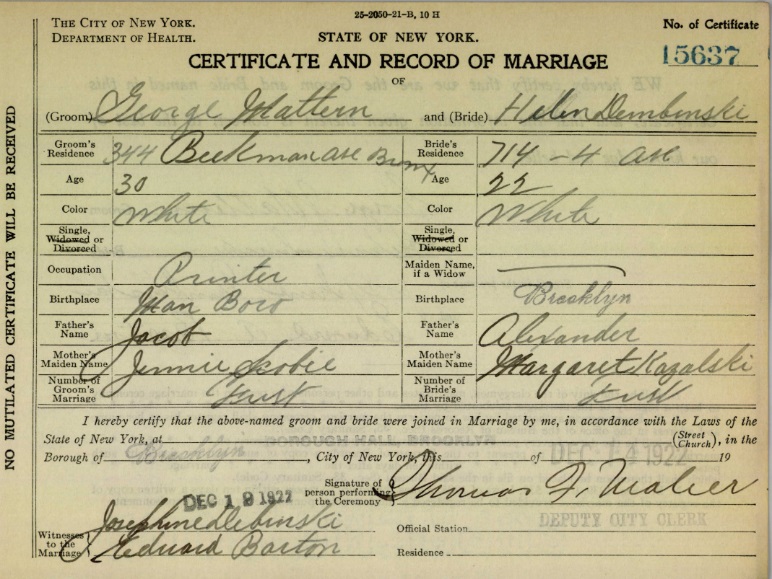 25-2050-21-B, 10 H
THE CITY OF NEW YORK.
DEPARTMENT OF HEALTH.
STATE OF NEW YORK.
No. of Certificate
15637
CERTIFICATE AND RECORD OF MARRIAGE
OF
(Groom) George Mattern and (Bride) Helen Dembinski
Groom's Residence 344 Beekman ave Bronx Bride's Residence 714 - 4 ave
Age 30 Age 22
Color White Color White
Single, Widowed or Divorced Single, Widowed or Divorced
Occupation Printer Maiden Name, if a Widow
Birthplace Man Boro Birthplace Brooklyn
Father's Name Jacob Father's Name Alexander
Mother's Maiden Name Jennie Mother's Maiden Name Margaret Kazalski
Number of Groom's Marriage First Number of Bride's Marriage First
I hereby certify that the above-named groom and bride were joined in Marriage by me, in accordance with the Laws of the
State of New York, at (Street Church), in the
Borough of Brooklyn, City of New York, this of DEC 14 1922 19
Signature of person performing the Ceremony Thomas F.
DEC 1 1922
Witnesses to the Marriage
Edward Barton
Official Station DEPUTY CITY CLERK
Residence
NO MUTILATED CERTIFICATE WILL BE RECEIVED